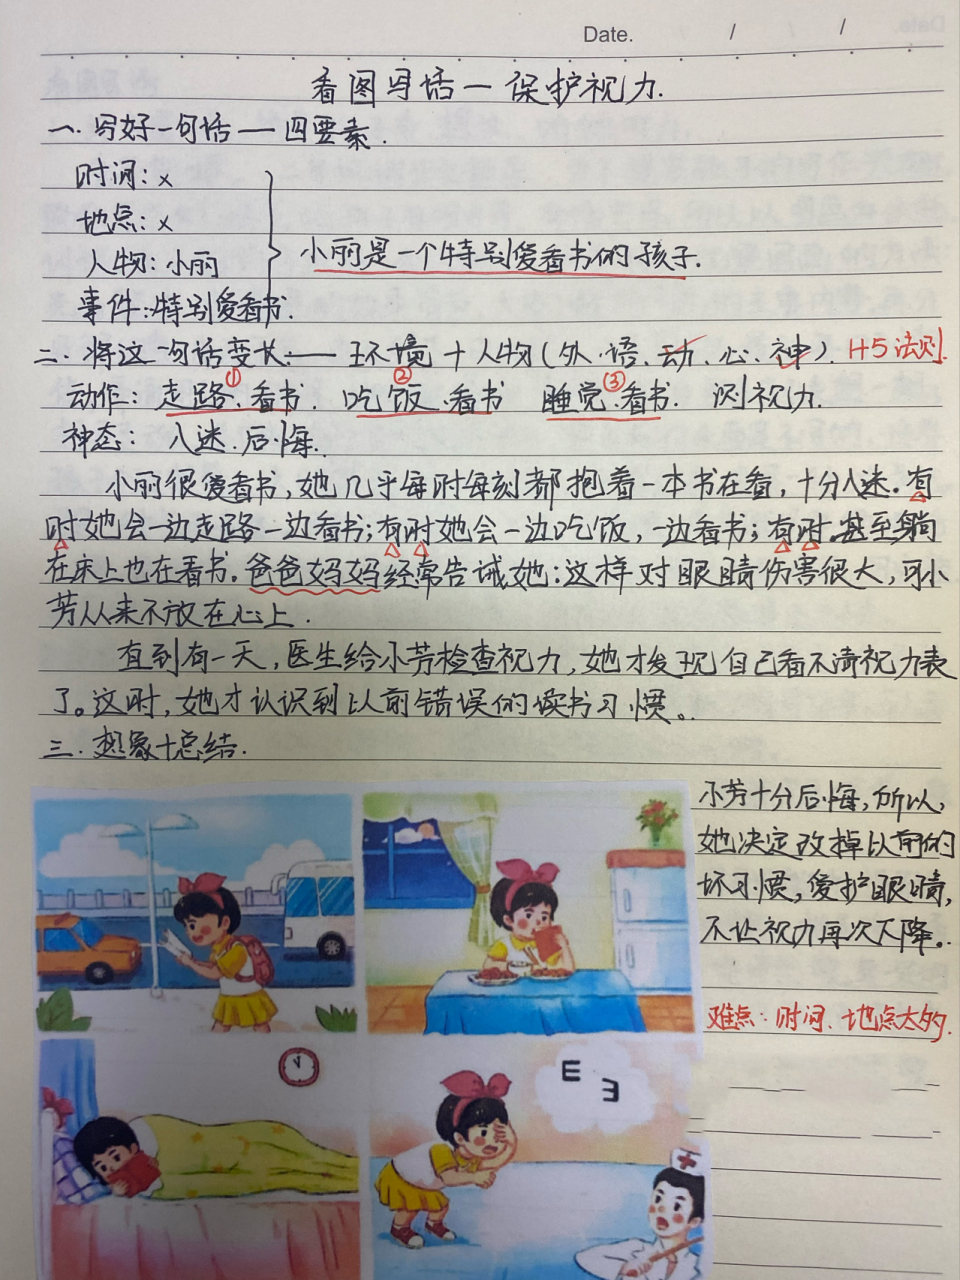 Date. / /
看图写话一保护视力.
一.写好一句话——四要素.
时间:x
地点:x
人物:小丽
小丽是一个特别爱看书的孩子.
事件:特别爱看书.
二.将这一句话变长:——环境+人物(外.语.动.心.神). 1+5法则
① ② ③
动作:走路.看书. 吃饭.看书 睡觉.看书. 测视力.
神态: 入迷.后悔.
小丽很爱看书,她几乎每时每刻都抱着一本书在看,十分入迷.有
时她会一边走路一边看书;有时她会一边吃饭,一边看书;有时.甚至躺
在床上也在看书。爸爸妈妈经常告诫她:这样对眼睛伤害很大,可小
芳从来不放在心上.
直到有一天,医生给小芳检查视力,她才发现自己看不清视力表
了。这时,她才认识到以前错误的读书习惯。
三.想象+总结.
小芳十分后悔,所以,
她决定改掉以前的
坏习惯,爱护眼睛,
不让视力再次下降。
难点:时间、地点太多.
E E